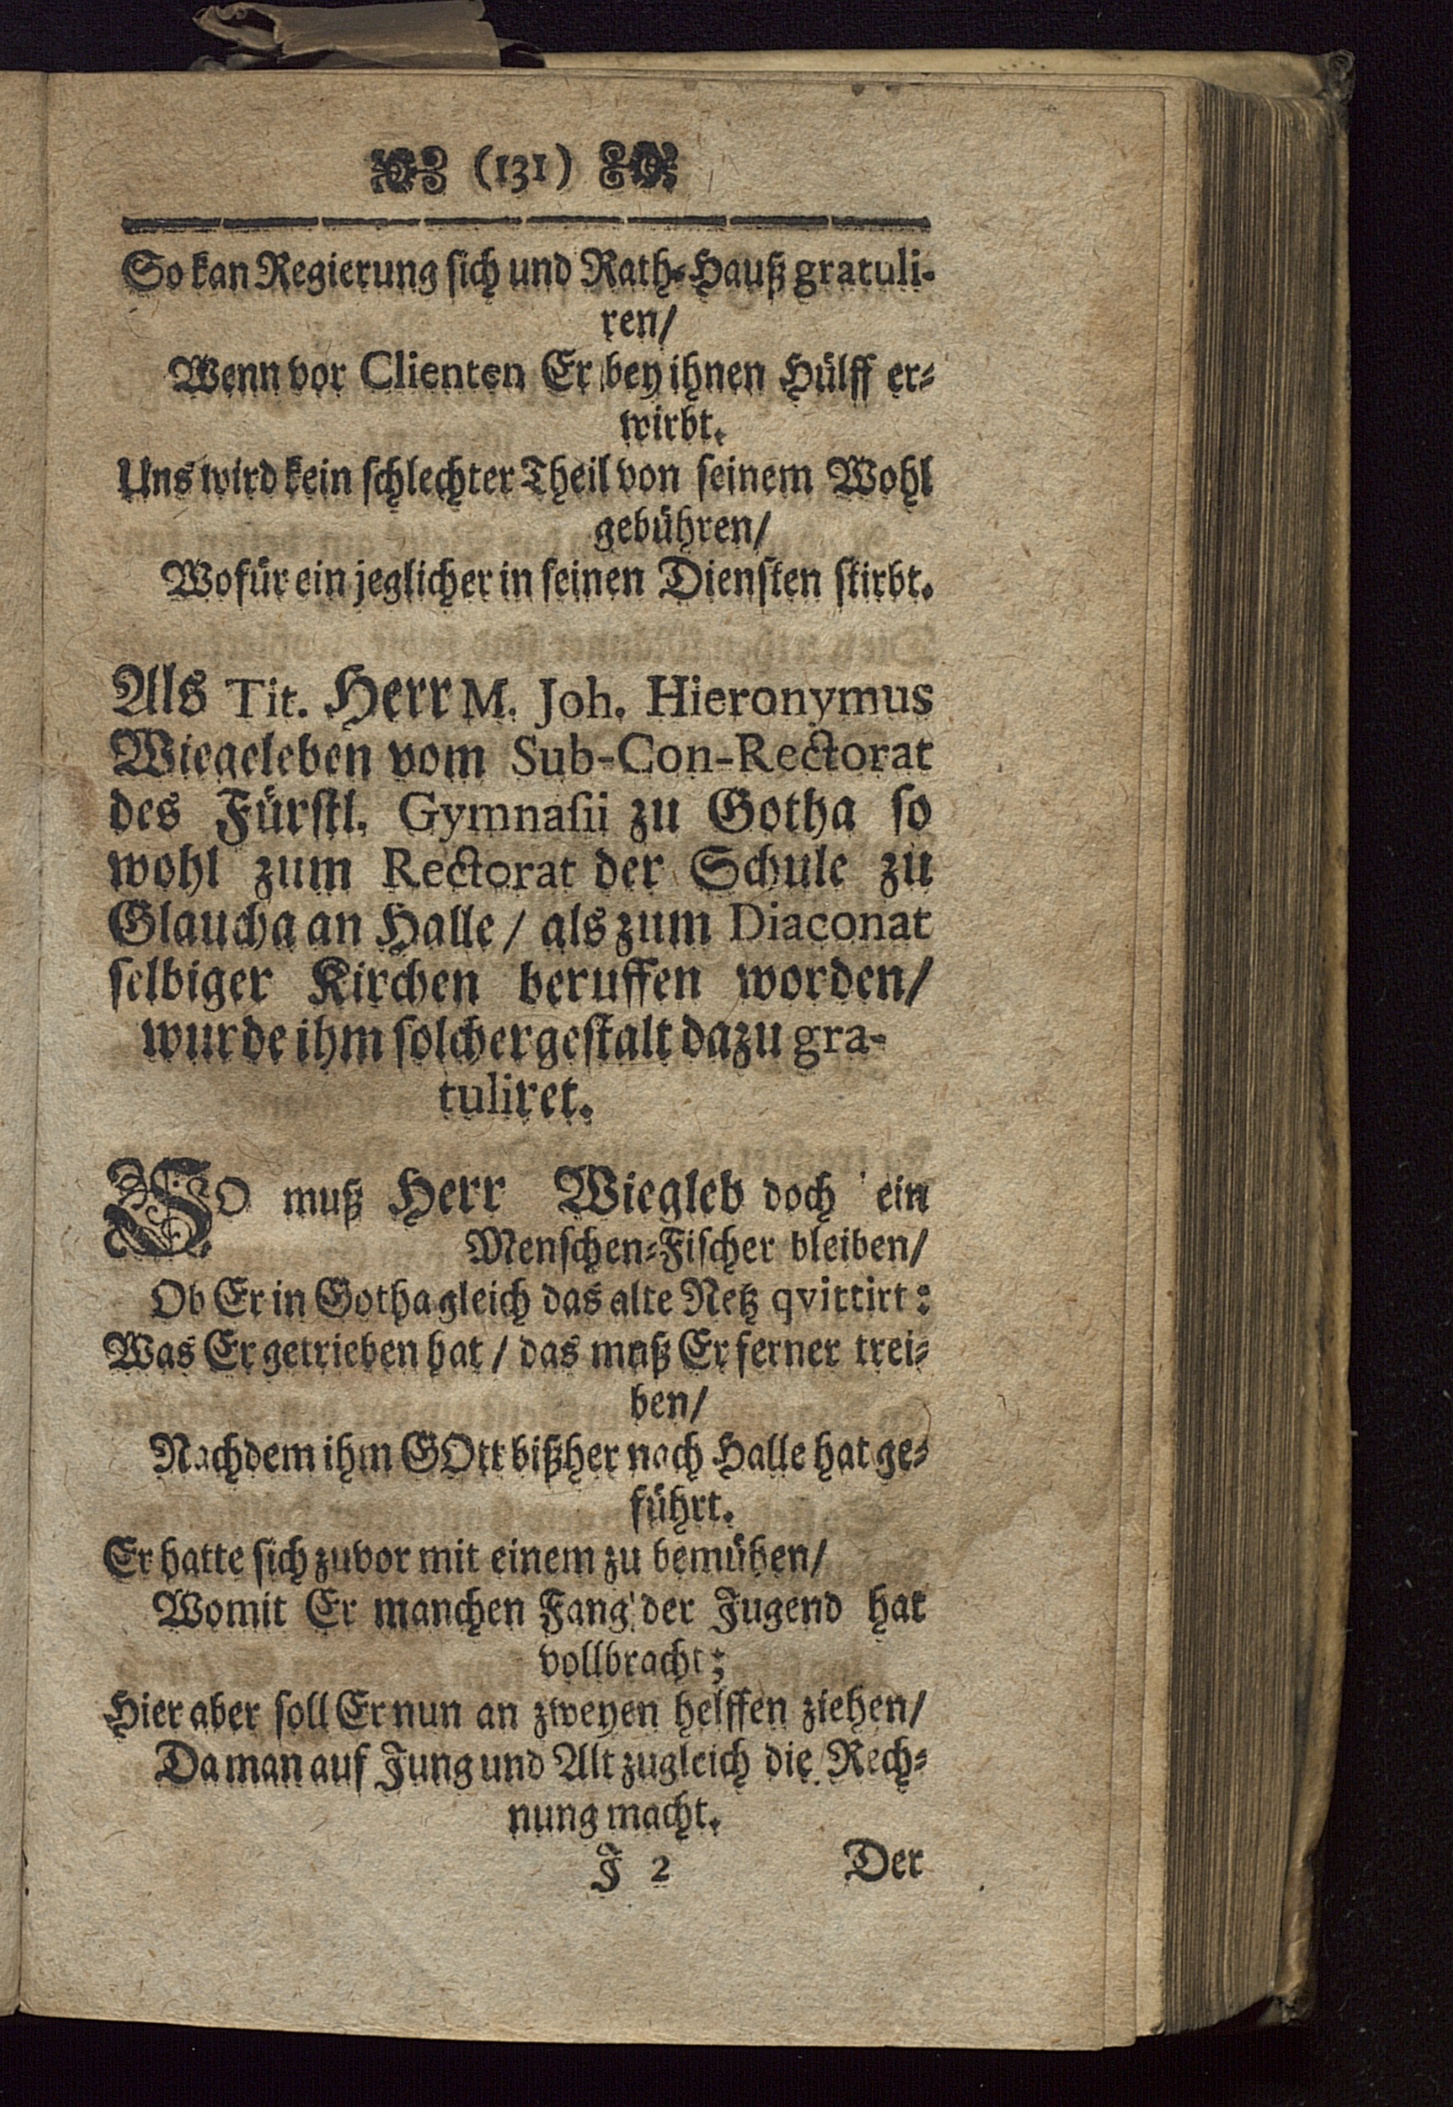 (131)
So kan Regierung sich und Rath-Hauß gratuli-
ren/
Wenn vor Clienten Er bey ihnen Hülff er-
wirbt.
Uns wird kein schlechter Theil von seinem Wohl
gebühren/
Wofür ein jeglicher in seinen Diensten stirbt.
Als Tit. Herr M. Joh. Hieronymus
Wiegeleben vom Sub-Con-Rectorat
des Fürstl. Gymnasii zu Gotha so
wohl zum Rectorat der Schule zu
Glaucha an Halle / als zum Diaconat
selbiger Kirchen beruffen worden/
wurde ihm solchergestalt dazu gra-
tuliret.
SO muß Herr Wiegleb doch ein
Menschen-Fischer bleiben/
Ob Er in Gotha gleich das alte Netz qvittirt:
Was Er getrieben hat / das muß Er ferner trei-
ben/
Nachdem ihm GOtt bißher nach Halle hat ge-
führt.
Er hatte sich zuvor mit einem zu bemühen/
Womit Er manchen Fang der Jugend hat
vollbracht;
Hier aber soll Er nun an zweyen helffen ziehen/
Da man auf Jung und Alt zugleich die Rech-
nung macht.
J 2 Der